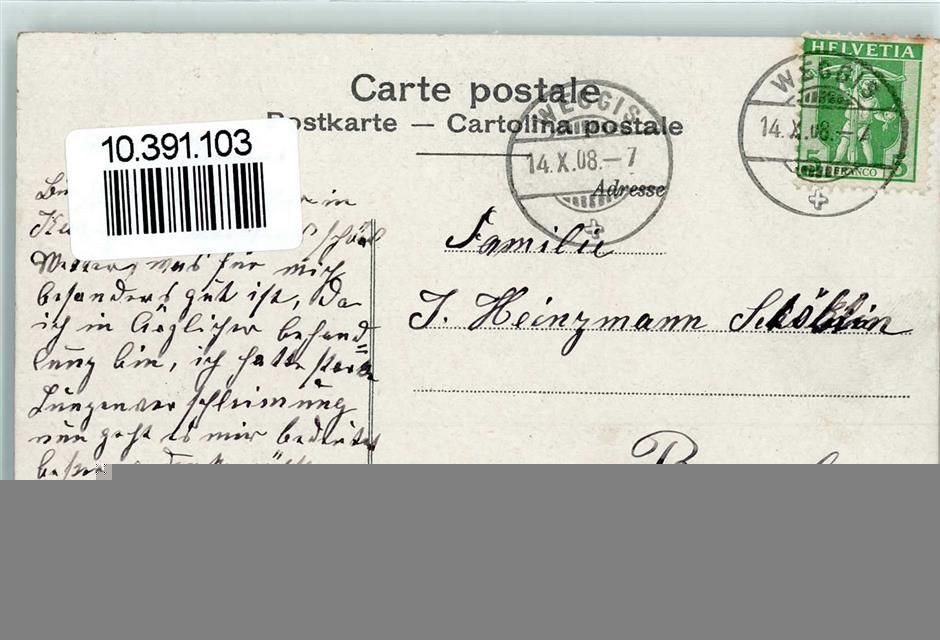 Carte postale
Postkarte — Cartolina postale
HELVETIA
5 5
FRANCO
WEGGIS
14.X.08.–7
WEGGIS
14.X.08.–7
Adresse
10.391.103
in
schön
Wetter, was für mich
besonders gut ist, da
ich in ärzlicher behand=
lung bin, ich hatte starke
Lungenverschleimung
nun geht es mir bedeutend
besser
Familie
J. Heinzmann Stöklin